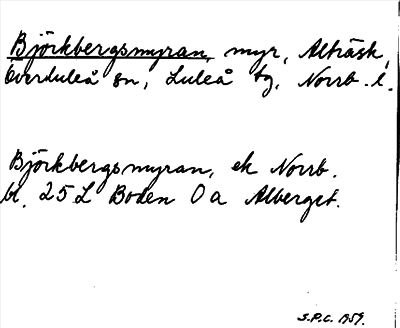 Björkbergsmyran, myr, Alträsk,
Överluleå sn, Luleå tg, Norrb. l.
Björkbergsmyran, ek Norrb.
bl. 25 L Boden 0 a Alberget.
S.P.C. 1959.